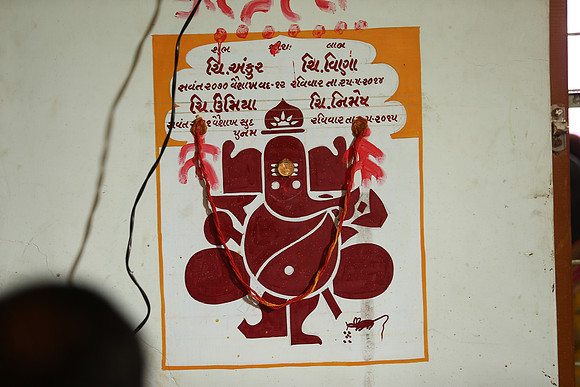 શુભ શ્રી૧ા લાભ
ચિ.અંકુર ચિ.વિણા
સવંત ૨૦૭૦ વૈશાખ વદ-૧૨ રવિવાર તા.૨૫-૫-૨૦૧૪
ચિ.ઉર્મિયા ચિ.નિમેષ
સવંત વૈશાખ સુદ રવિવાર તા. -૫-૨૦૧૫
પુનમ